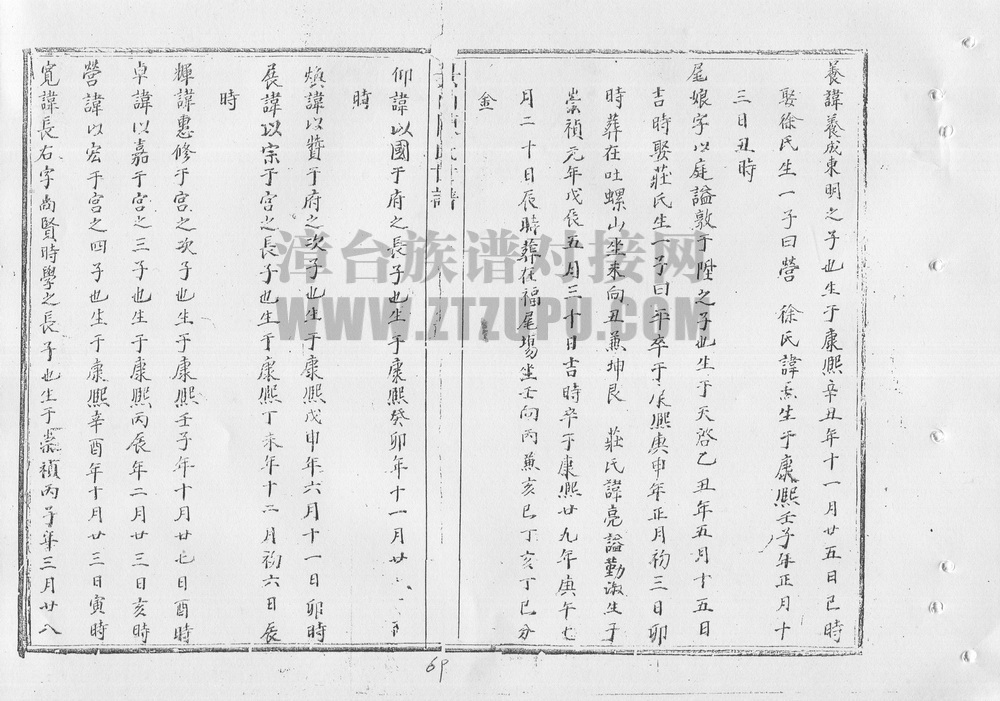 養諱養成東明之子也生于康熙辛丑年十一月廿五日巳時
娶徐氏生一子曰營 徐氏諱焘生于康熙壬子年正月十
三日丑時
尾娘字以庭謚敦于陞之子也生于天啓乙丑年五月十五日
吉時娶莊氏生一子曰平卒于康熙庚申年正月初三日卯
時葬在吐螺山坐未向丑兼坤艮 莊氏諱亮謚勤淑生于
崇禎元年戊辰五月三十日吉時卒于康熙廿九年庚午七
月二十日辰時葬在福尾塲坐壬向丙兼亥巳丁亥丁巳分
金
陳氏世譜
仰諱以國于府之長子也生于康熙癸卯年十一月廿
時
煥諱以贊于府之次子也生于康熙戊申年六月十一日卯時
展諱以宗于宫之長子也生于康熙丁未年十二月初六日辰
時
輝諱惠修于宫之次子也生于康熙壬子年十月廿七日酉時
卓諱以嘉于宫之三子也生于康熙丙辰年二月廿三日亥時
營諱以宏于宫之四子也生于康熙辛酉年十月廿三日寅時
寬諱長右字尚賢時學之長子也生于崇禎丙子年三月廿八
漳台族谱对接网
WWW.ZTZUPU.COM
69